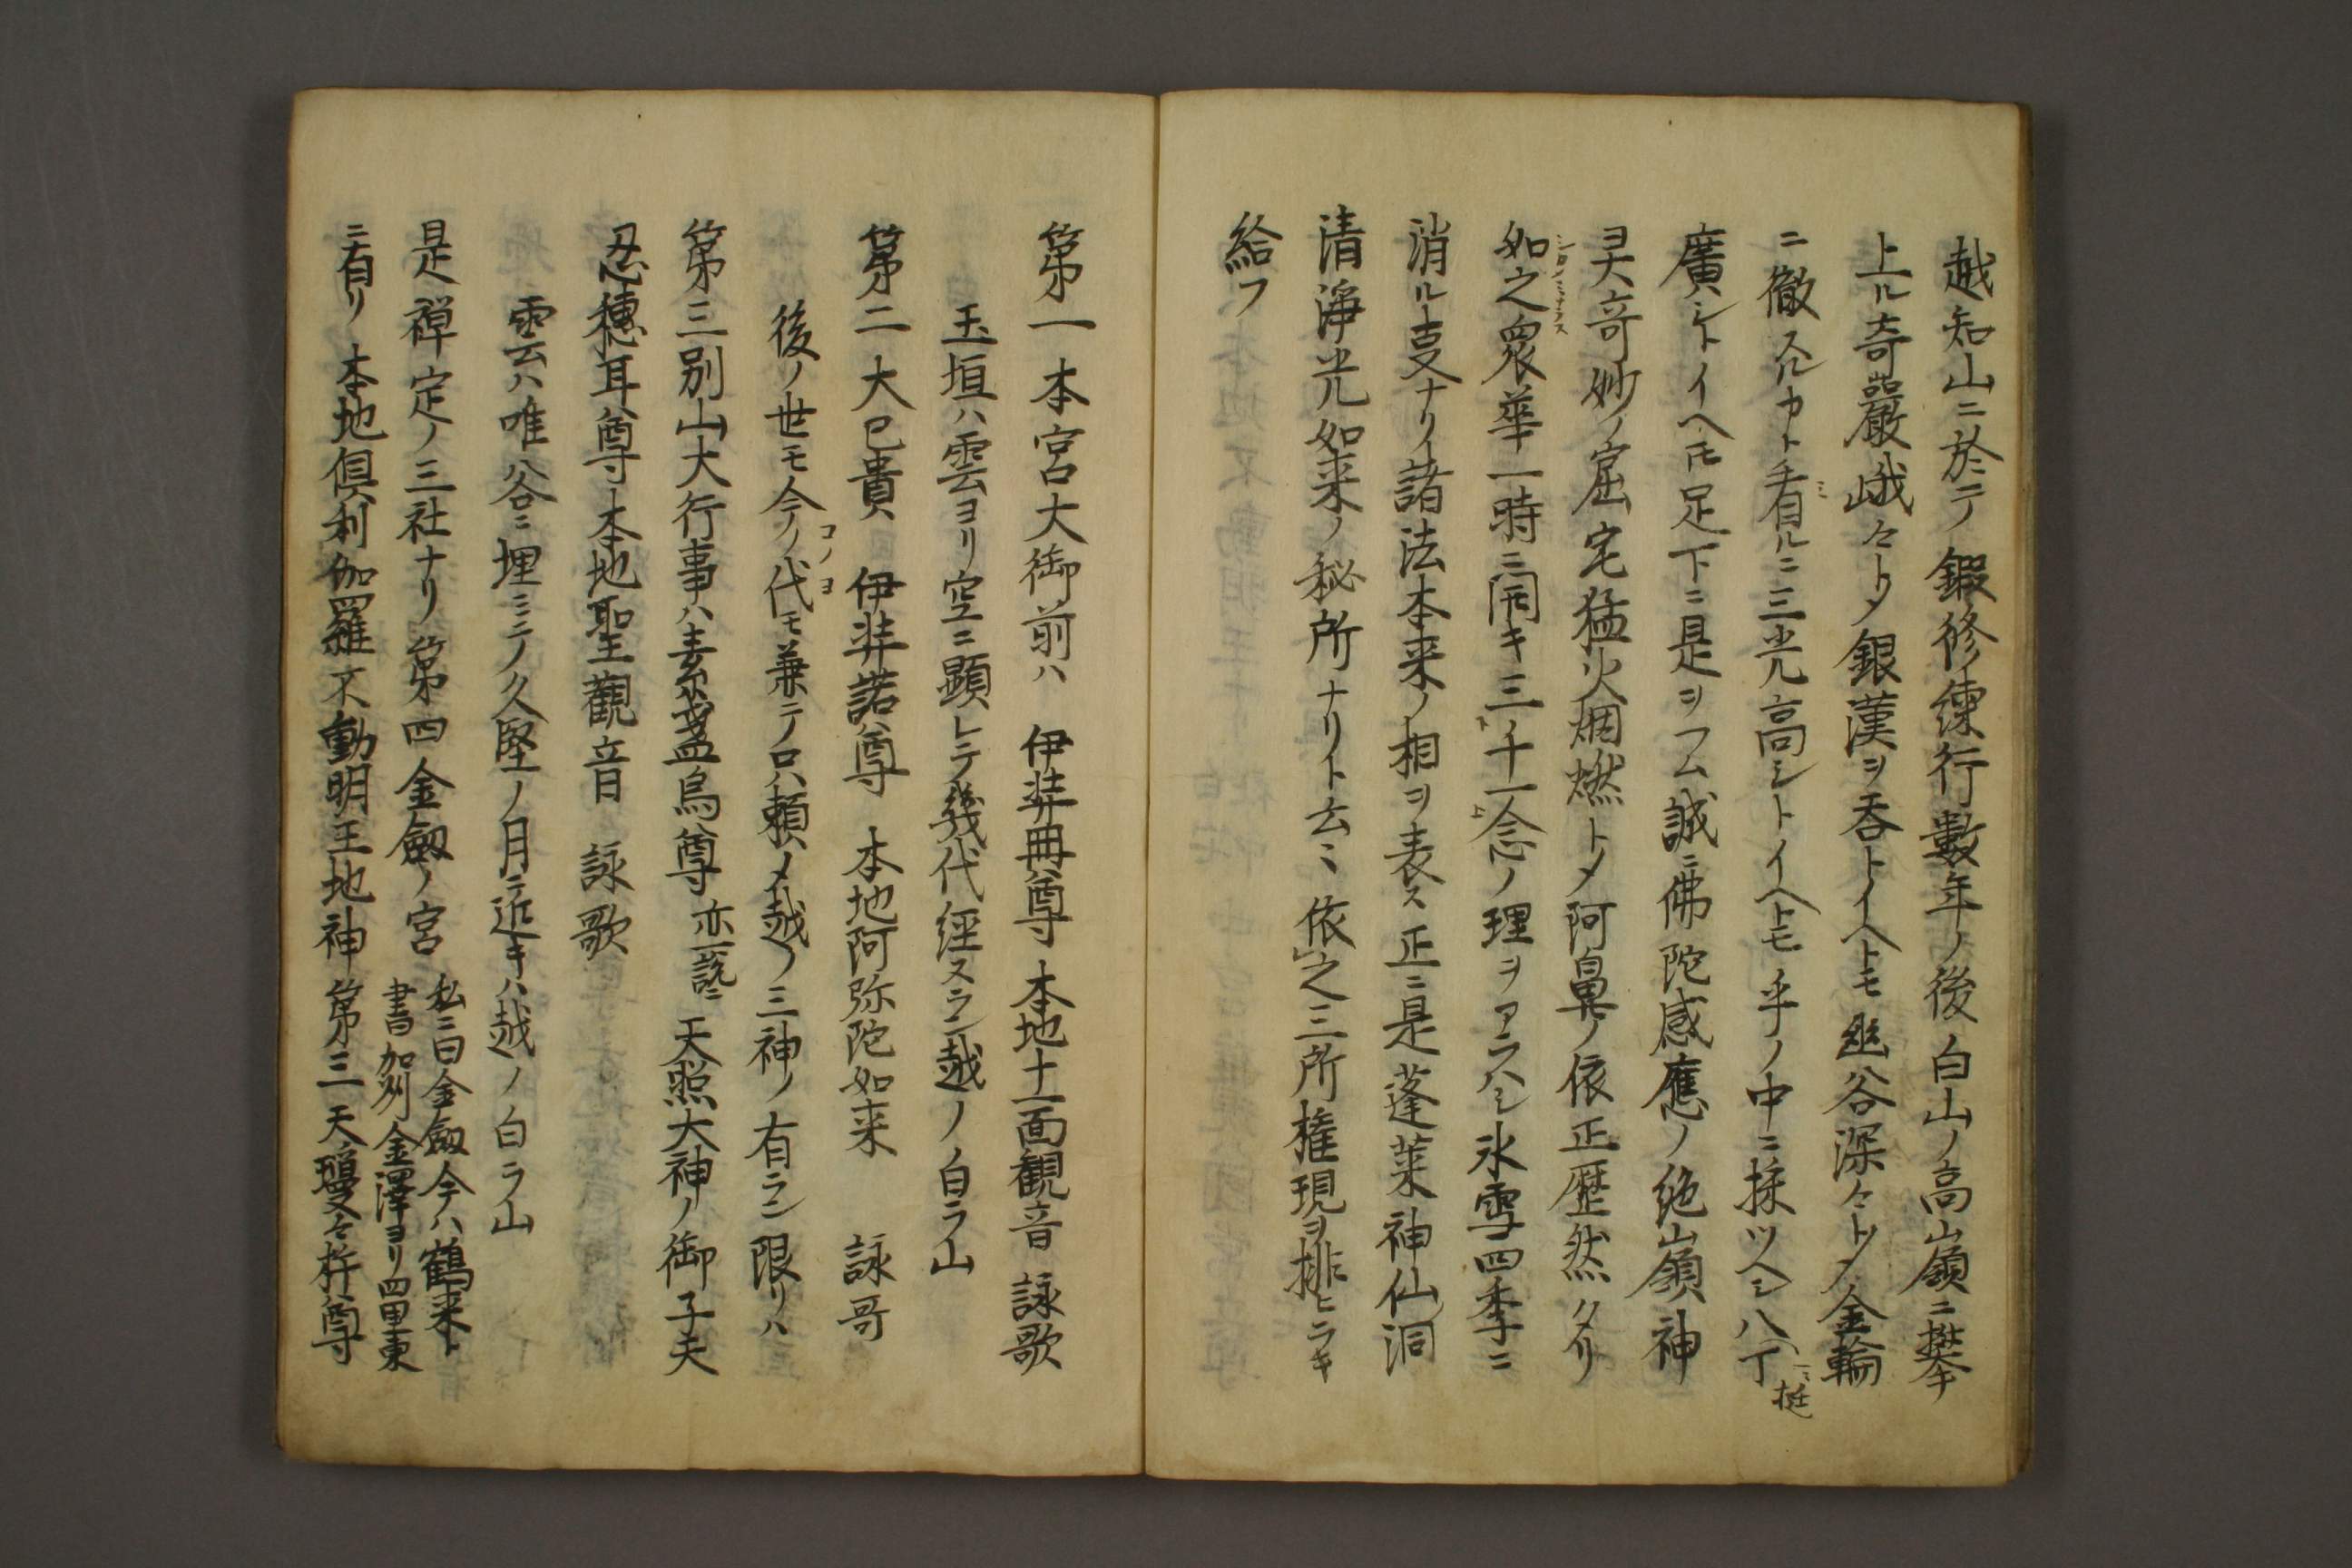 越知山ニ於テ鍜修練行數年ノ後白山ノ高嶺ニ攀
上ル奇巖峨々トメ銀漢ヲ呑トイヘトモ幽谷深々トメ金輪
ニ徹スルカト看ルニ三光高シトイヘトモ乎ノ中ニ採ツヘシ八丁
ミ
挺
廣シトイヘモ足下ニ是ヲフム誠ニ佛陀感應ノ絶嶺神
奇妙ノ窟宅猛火烟燃トメ阿鼻ノ依正歴然タリ
如之衆華一時ニ開キ三千一念ノ理ヲアラハシ氷雪四季ニ
シカノミナラス
消ル叓ナリイ諸法本来ノ相ヲ表ス正ニ是蓬莱神仙洞
清淨光如来ノ秘所ナリト云々依之三所権現ヲ排ヒラキ
給フ
第一本宮大御前ハ 伊弉冊尊 本地十一面観音 詠歌
玉垣ハ雲ヨリ空ニ顕レテ幾代経スラン越ノ白ラ山
第二大已貴ハ 伊弉諾尊 本地阿弥陀如来 詠哥
後ノ世モ今ノ代モ兼テ只頼メ越ノ三神ノ有ラン限リハ
コノヨ
第三別山大行事ハ素戔烏尊 亦一説ニ 天照大神ノ御子天
忍穂耳尊本地聖觀音 詠歌
雪ハ唯谷ニ埋ミテノ久堅ノ月ニ近キハ越ノ白ラ山
是禅定ノ三社ナリ 第四金劔ノ宮 私ニ曰金劔今ハ鶴来ト
書加刕金澤ヨリ四里東
ニ有リ 本地倶利伽羅不動明王地神第三天瓊々杵尊